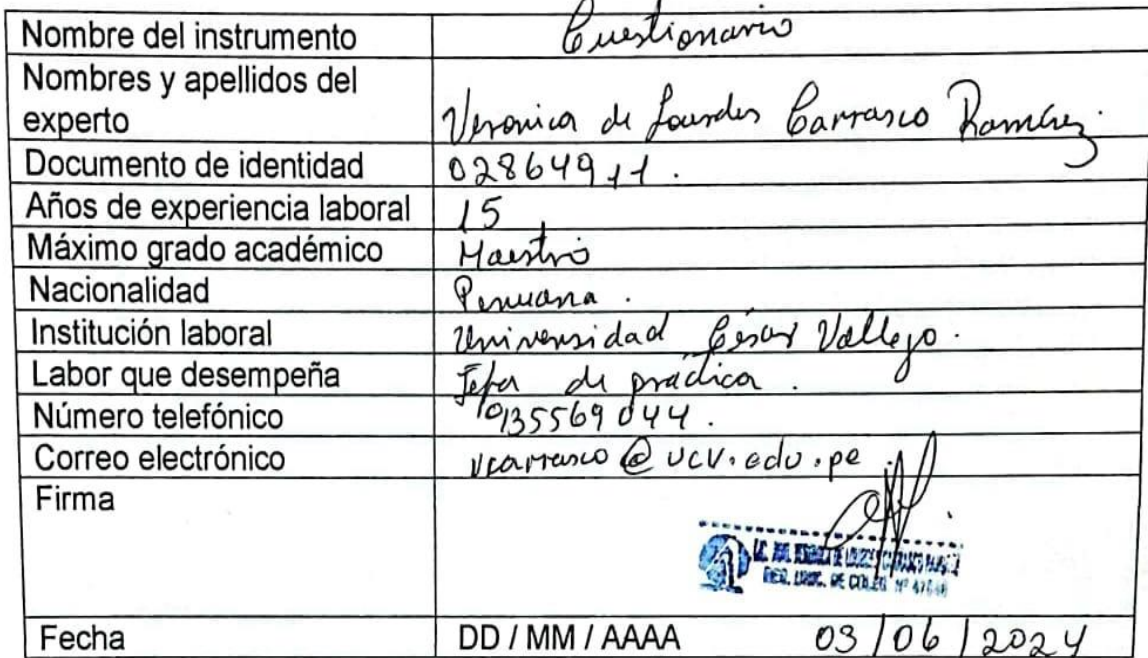 Nombre del instrumento Cuestionario
Nombres y apellidos del
experto Veronica de Lourdes Carrasco Ramírez.
Documento de identidad 02864911.
Años de experiencia laboral 15
Máximo grado académico Maestro
Nacionalidad Peruana.
Institución laboral Universidad César Vallejo.
Labor que desempeña Jefa de práctica.
Número telefónico 935569044.
Correo electrónico vcarrasco@ucv.edu.pe
Firma
REG. UNIC. DE COLEG. Nº
Fecha DD / MM / AAAA 03/06/2024